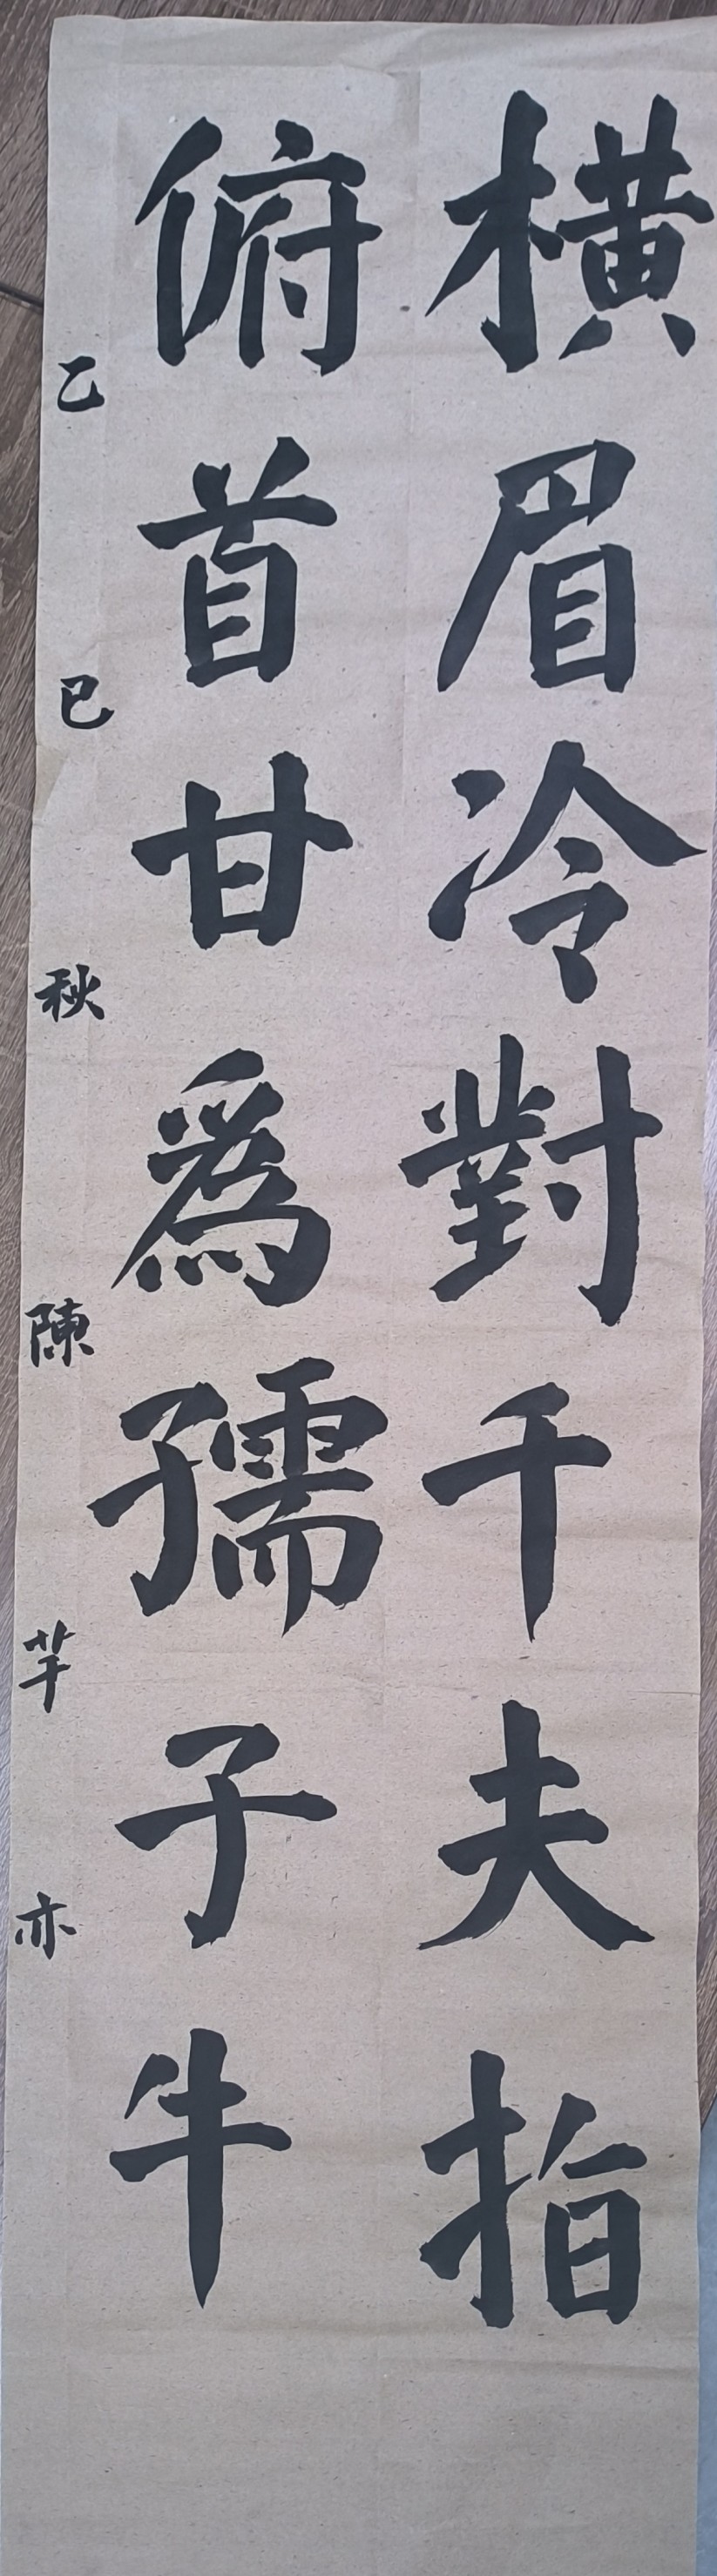 橫眉冷對千夫指
俯首甘爲孺子牛
乙巳秋陳芊亦